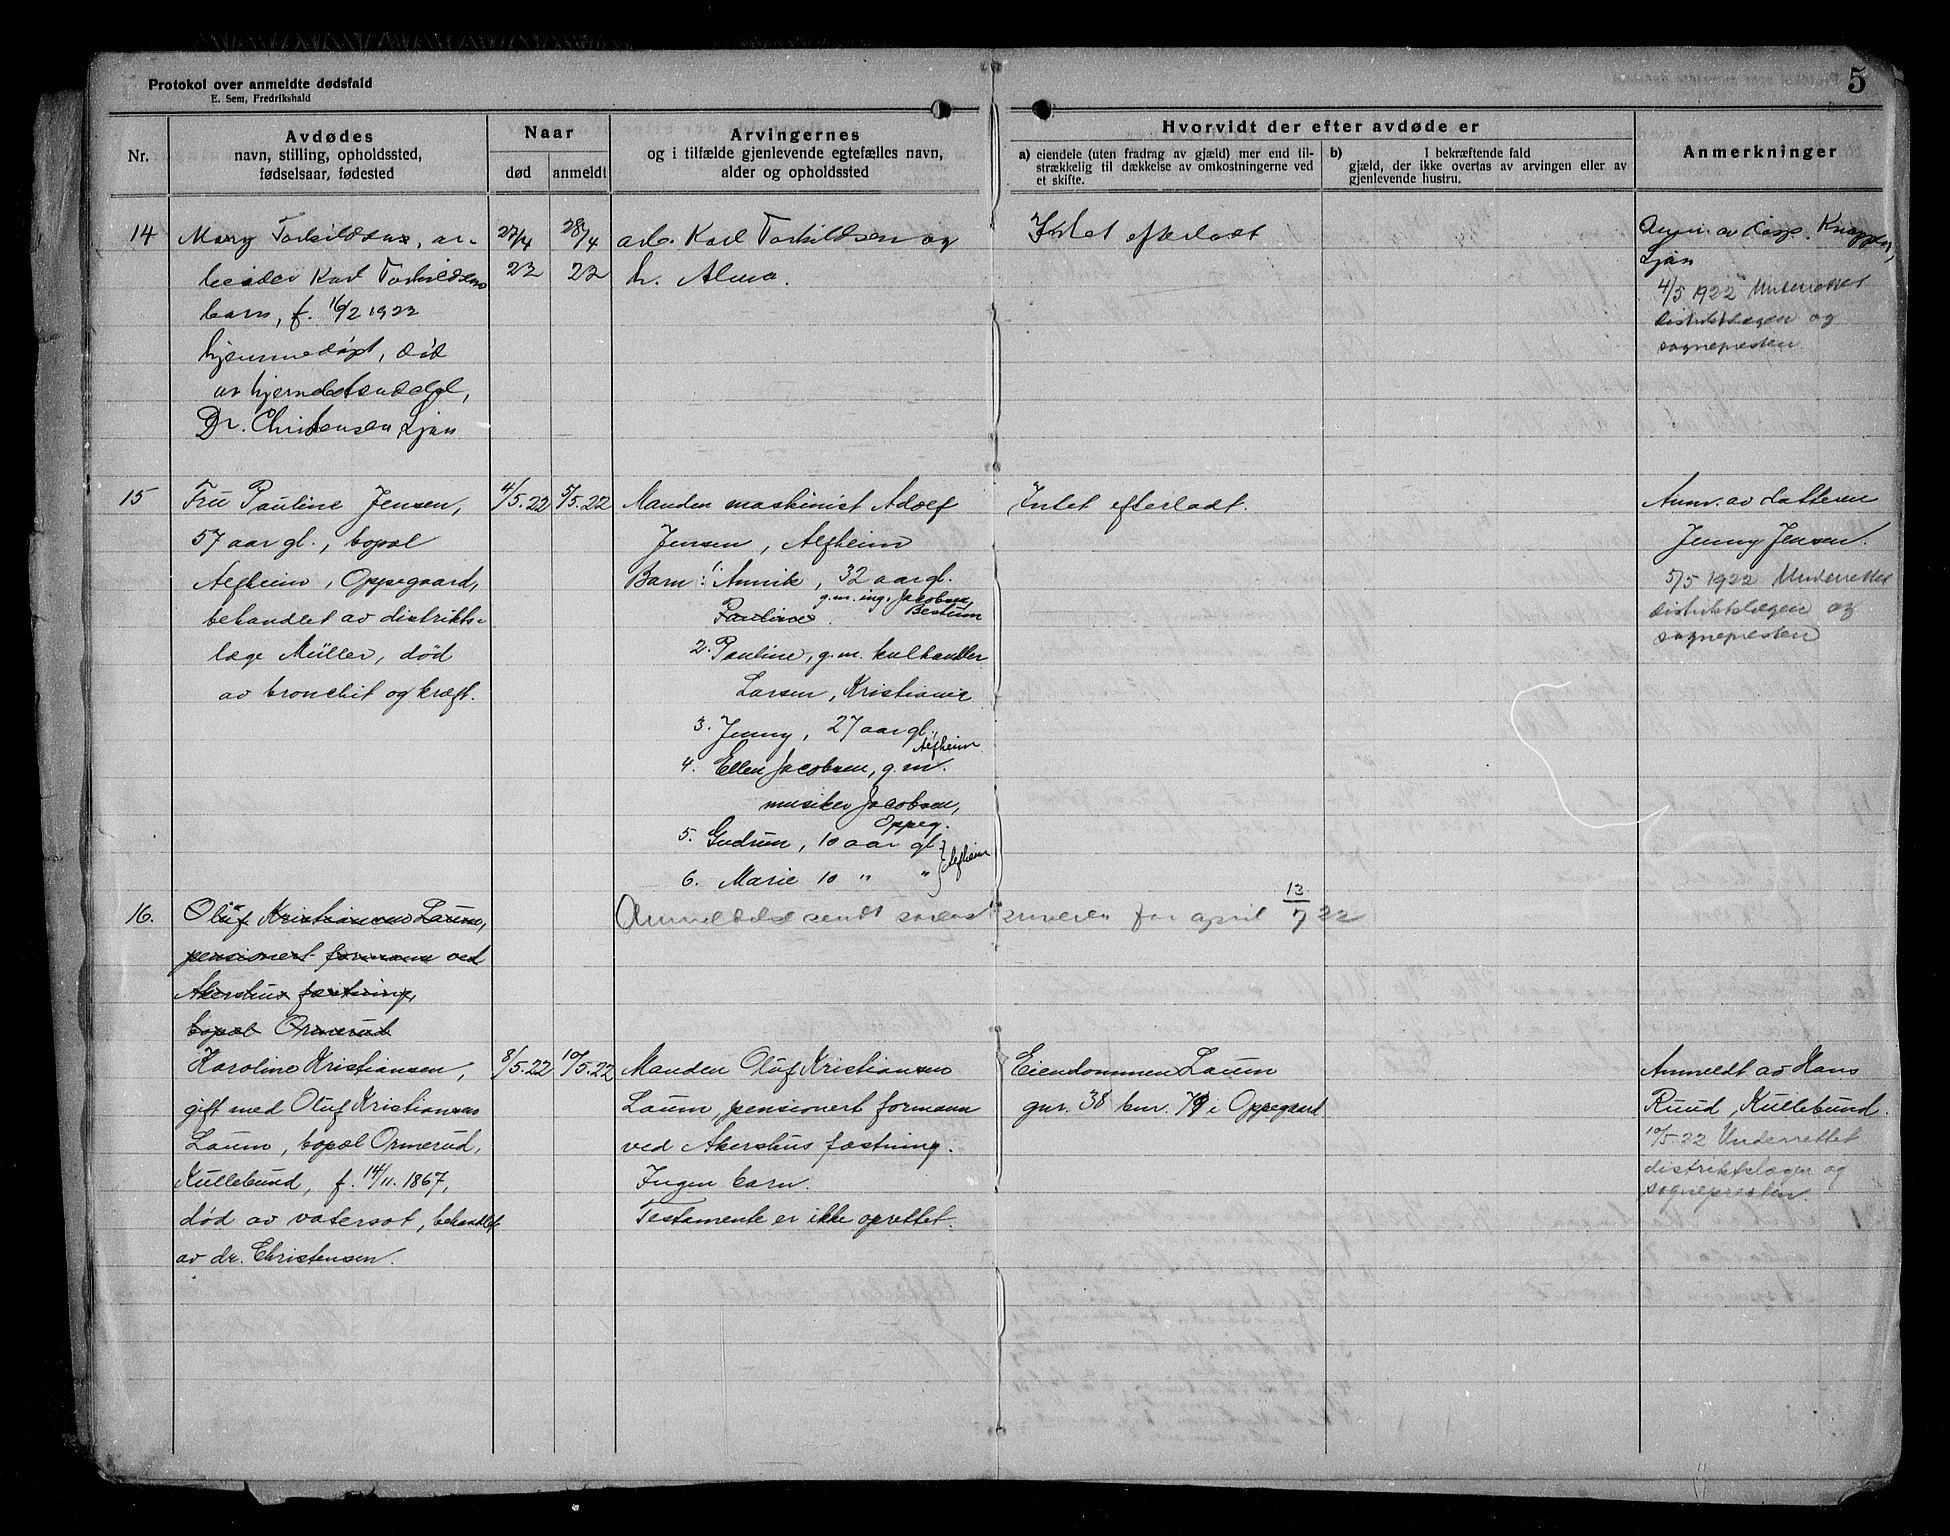 Protokol over anmeldte dødsfald
E. Sem, Fredrikshald
5
Nr.
Avdødes
navn, stilling, opholdssted,
fødselsaar, fødested
Naar
død
anmeldt
Arvingernes
og i tilfælde gjenlevende egtefælles navn,
alder og opholdssted
Hvorvidt der efter avdøde er
a) eiendele (uten fradrag av gjæld) mer end til-
strækkelig til dækkelse av omkostningerne ved
et skifte.
b) I bekræftende fald
gjæld, der ikke overtas av arvingen eller av
gjenlevende hustru.
Anmerkninger
14
Mary Torkildsens, ar-
beider Karl Torkildsens
barn, f. 16/2 1922
hjemmedøpt, død
av
Dr. Christensen Ljan
27/4
22
28/4
22
arb. Karl Torkildsen og
h. Alma.
Intet efterladt
Anm. av
Ljan
4/5 1922 Underrettet
distriktslægen og
sognepresten
15
Fru Pauline Jensen,
57 aar gl., bopæl
Alfheim, Oppegaard,
behandlet av distrikts-
læge Müller, død
av bronchit og kræft.
4/5.22
5/5.22
Manden maskinist Adolf
Jensen, Alfheim
Barn: 1. Annik, 32 aar gl.
g.m. ing. Jacobsen,
Pauline. Bestum
2. Pauline, g.m. kulhandler
Larsen, Kristiania
3. Jenny, 27 aar gl.,
Alfheim
4. Ellen Jacobsen, g.m.
musiker Jacobsen,
Oppeg.
5. Gudrun, 10 aar gl.
6. Marie 10 " " } Alfheim
Intet efterladt.
Anm. av datteren
Jenny Jensen.
5/5 1922 Underrettet
distriktslægen og
sognepresten
16.
Oluf Kristiansens Laum,
pensionert formann ved
Akershus fæstning,
bopæl Ormerud
Anmeldelse sendt sorenskriveren for april 13/7 22
Karoline Kristiansen,
gift med Oluf Kristiansens
Laum, bopæl Ormerud,
Kullebund, f. 14/11.1867,
død av vatersot, behandlet
av dr. Christensen.
8/5.22
10/5.22
Manden Oluf Kristiansen
Laum, pensionert formann
ved Akershus fæstning.
Ingen barn.
Testamente er ikke oprettet.
Eiendommen Laum
gnr. 38 bnr. 79 i Oppegaard
Anmeldt av Hans
Ruud, Kullebund.
10/5.22 Underrettet
distriktslægen og
sognepresten.